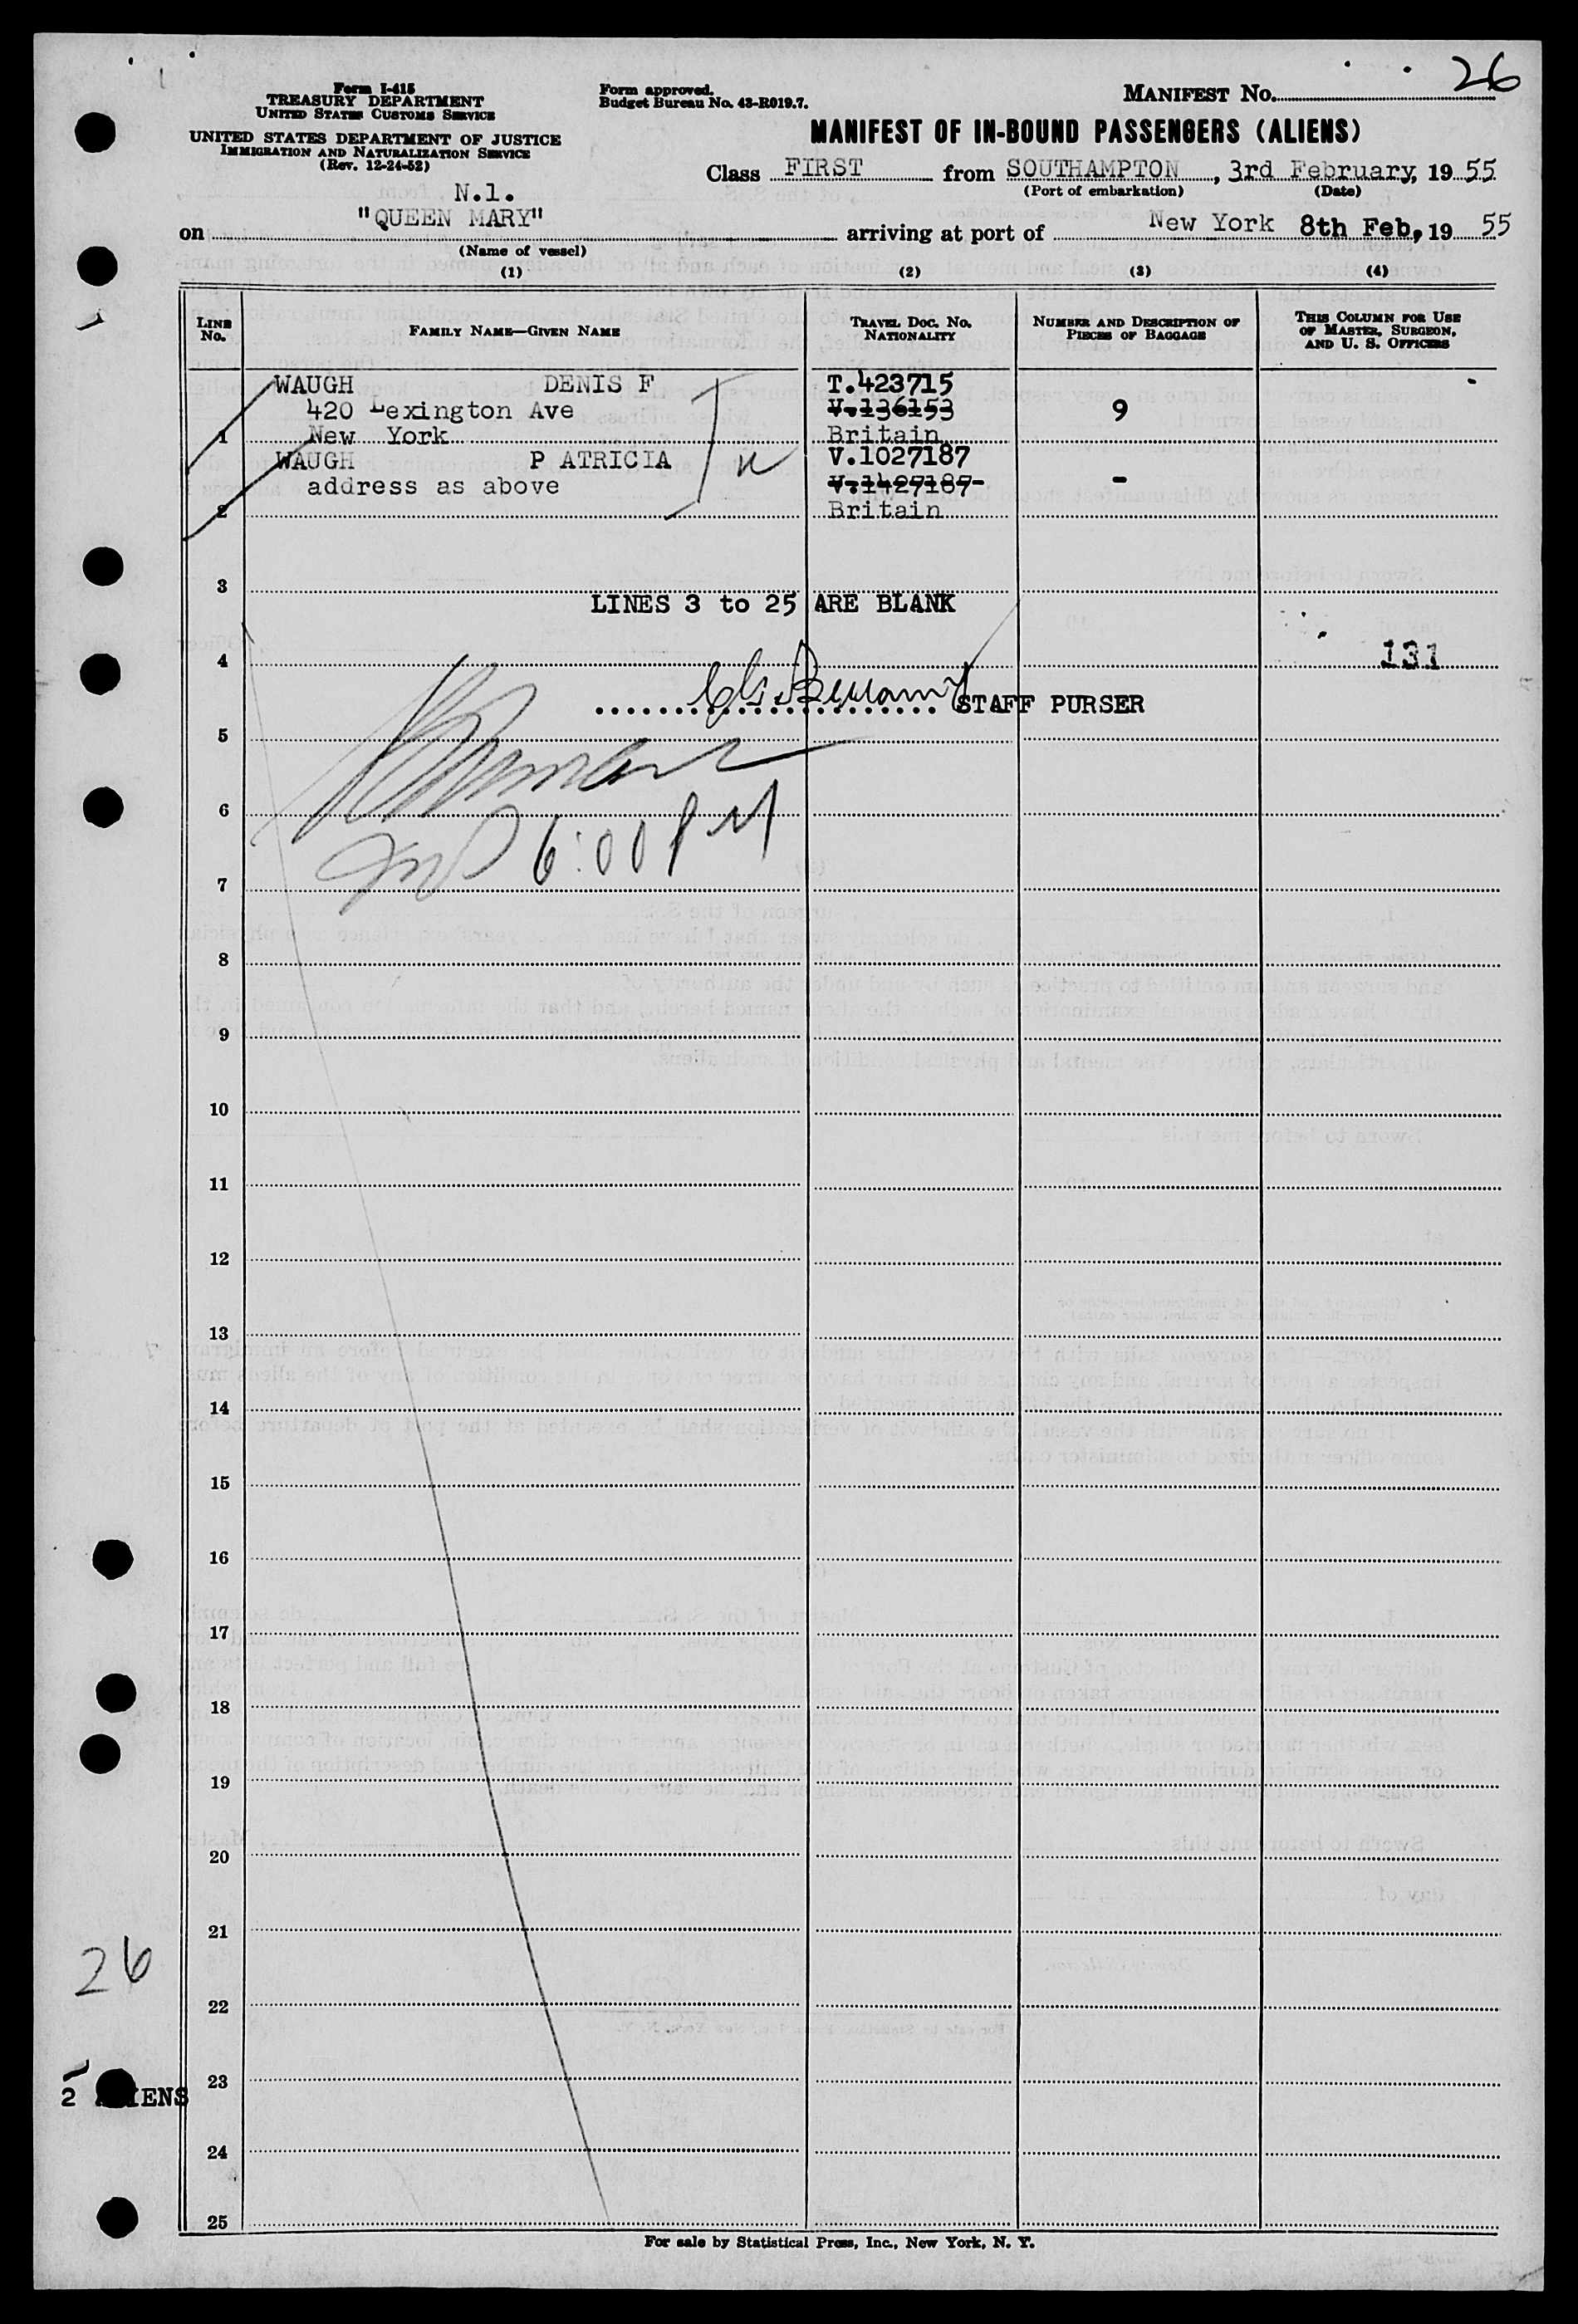 26
Form I-415
TREASURY DEPARTMENT
UNITED STATES CUSTOMS SERVICE
UNITED STATES DEPARTMENT OF JUSTICE
IMMIGRATION AND NATURALIZATION SERVICE
(Rev. 12-24-52)
Form approved.
Budget Bureau No. 43-R019.7.
MANIFEST No.
MANIFEST OF IN-BOUND PASSENGERS (ALIENS)
Class FIRST from SOUTHAMPTON, 3rd February, 19 55
(Port of embarkation) (Date)
N.1.
on "QUEEN MARY" arriving at port of New York 8th Feb, 19 55
(Name of vessel)
(1) (2) (3) (4)
LINE No. FAMILY NAME—GIVEN NAME TRAVEL DOC. NO. NATIONALITY NUMBER AND DESCRIPTION OF PIECES OF BAGGAGE THIS COLUMN FOR USE OF MASTER, SURGEON, AND U. S. OFFICERS
WAUGH DENIS F T.423715
420 Lexington Ave V.136153 9
1 New York Britain
WAUGH P ATRICIA V.1027187
address as above V.1427187- -
2 Britain
3
LINES 3 to 25 ARE BLANK
4 131
STAFF PURSER
5
6
6:00 PM
7
8
9
10
11
12
13
14
15
16
17
18
19
20
21
26
22
23
2 ALIENS
24
25
For sale by Statistical Press, Inc., New York, N. Y.